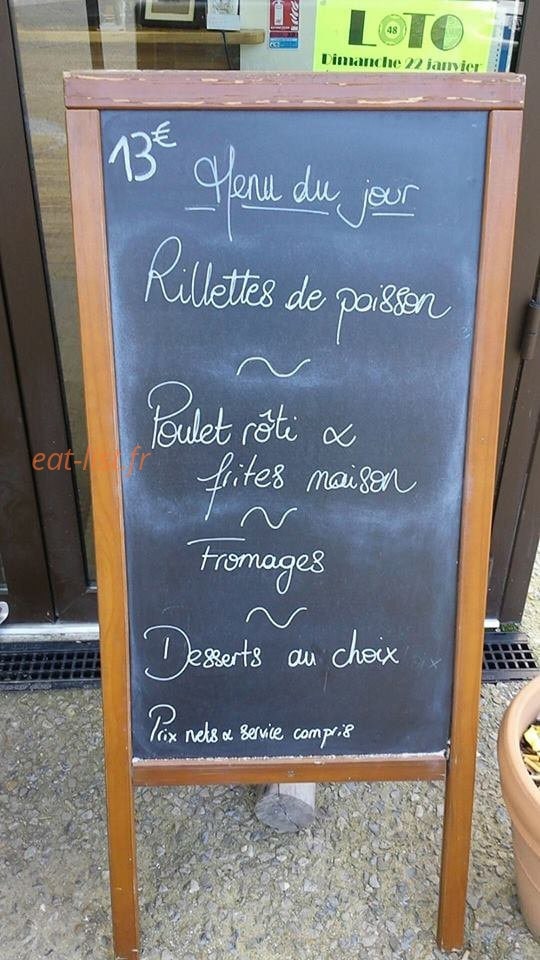 LOTO
48
Dimanche 22 janvier
13€
Menu du jour
Rillettes de poisson
~
Poulet rôti &
frites maison
~
Fromages
~
Desserts au choix
Prix nets & service compris